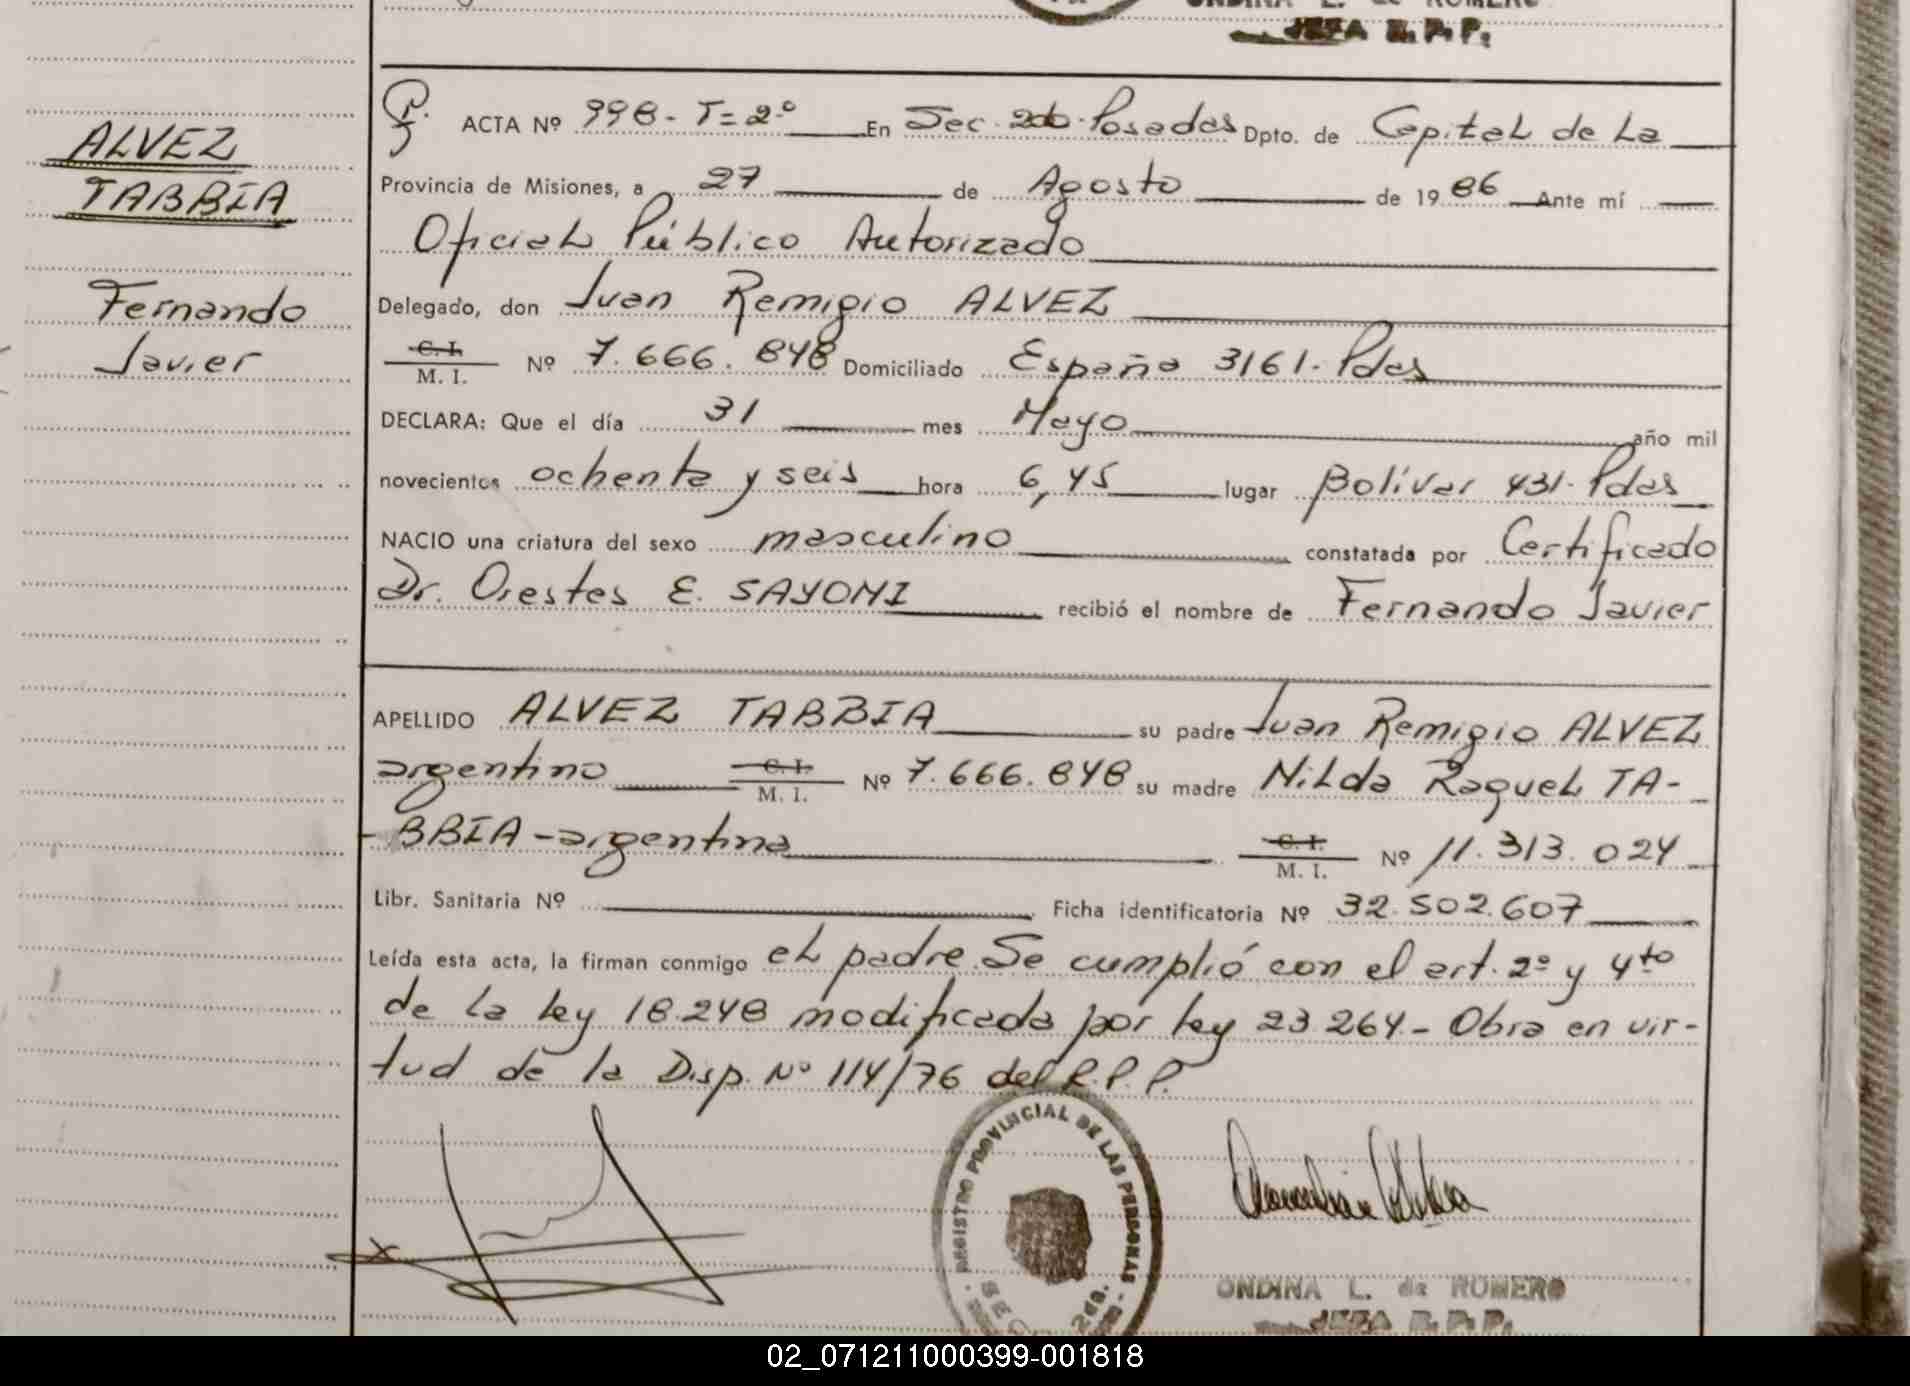 ONDINA L. de ROMERO
JEFA R.P.P.
ALVEZ
TABBIA
Fernando
Javier
ACTA Nº 998 - T=2º En Sec. 2da. Posadas Dpto. de Capital de La
Provincia de Misiones, a 27 de Agosto de 1986 Ante mí
Oficial Público Autorizado
Delegado, don Juan Remigio ALVEZ
C. I.
M. I. Nº 7.666.848 Domiciliado España 3161. Pdas
DECLARA: Que el día 31 mes Mayo año mil
novecientos ochenta y seis hora 6,45 lugar Bolívar 431. Pdas
NACIO una criatura del sexo masculino constatada por Certificado
Dr. Orestes E. SAYOMI recibió el nombre de Fernando Javier
APELLIDO ALVEZ TABBIA su padre Juan Remigio ALVEZ
argentino C. I. M. I. Nº 7.666.848 su madre Nilda Raquel TA-
-BBIA - argentina C. I. M. I. Nº 11.313.024
Libr. Sanitaria Nº Ficha identificatoria Nº 32.502.607
Leída esta acta, la firman conmigo el padre. Se cumplió con el art. 2º y 4to
de la ley 18.248 modificada por ley 23.264.- Obra en vir-
tud de la Disp. Nº 114/76 del R.P.P.
REGISTRO PROVINCIAL DE LAS PERSONAS
2da.
ONDINA L. de ROMERO
JEFA R.P.P.
02_071211000399-001818